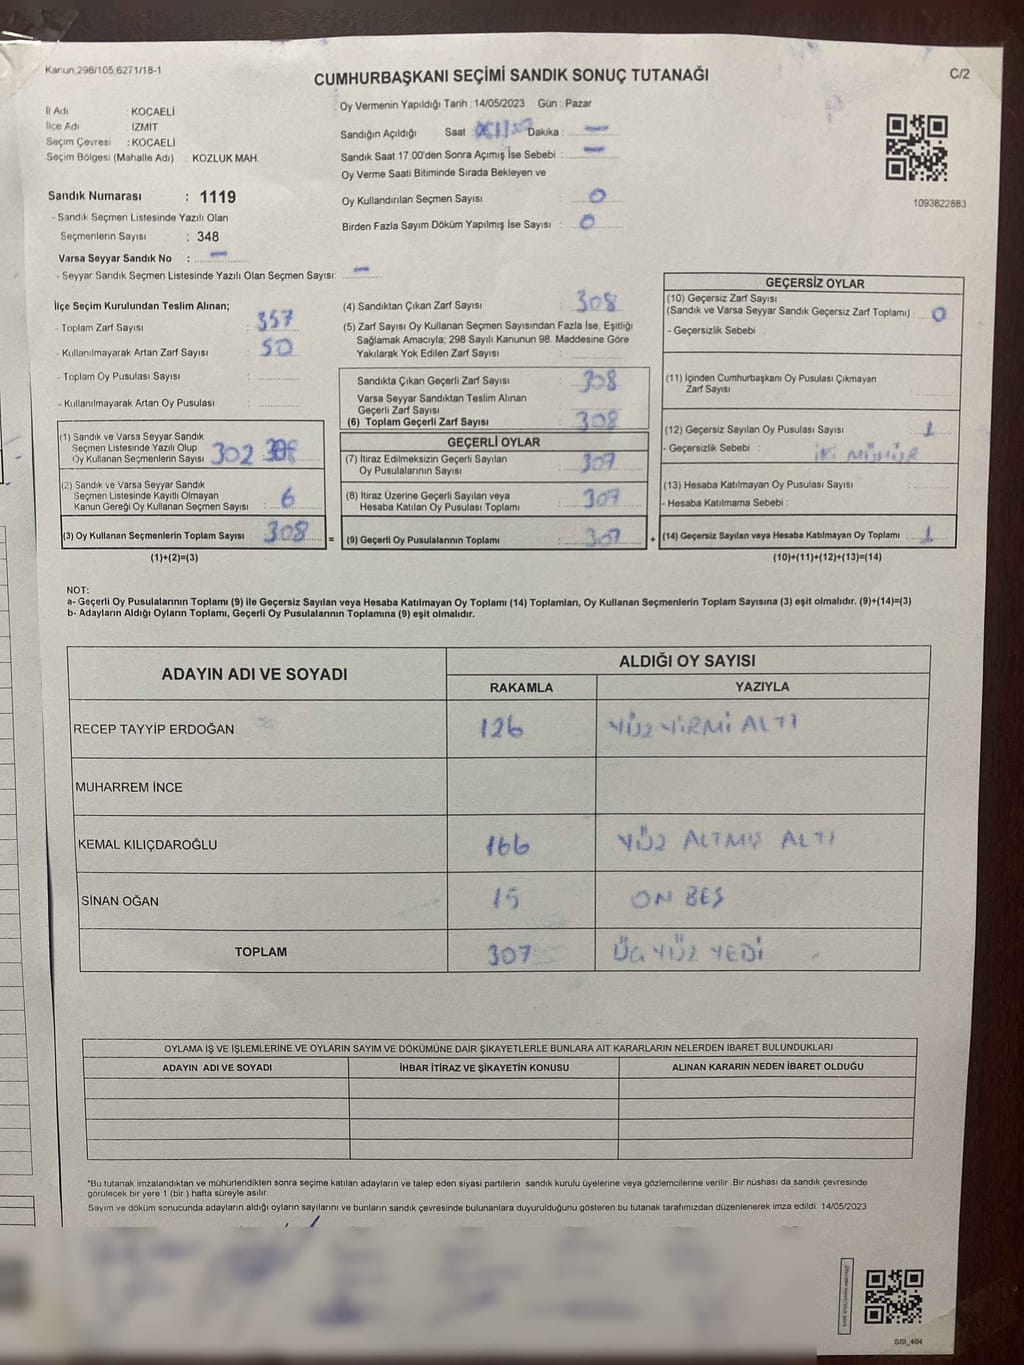 Kanun,298/105,6271/18-1
CUMHURBAŞKANI SEÇİMİ SANDIK SONUÇ TUTANAĞI
C/2
İl Adı : KOCAELİ
İlçe Adı : İZMİT
Seçim Çevresi : KOCAELİ
Seçim Bölgesi (Mahalle Adı) : KOZLUK MAH.
Oy Vermenin Yapıldığı Tarih : 14/05/2023 Gün : Pazar
Sandığın Açıldığı Saat : Dakika : —
Sandık Saat 17:00'den Sonra Açımış İse Sebebi : —
Oy Verme Saati Bitiminde Sırada Bekleyen ve
Oy Kullandırılan Seçmen Sayısı : 0
Birden Fazla Sayım Döküm Yapılmış İse Sayısı : 0
1093822883
Sandık Numarası : 1119
- Sandık Seçmen Listesinde Yazılı Olan
Seçmenlerin Sayısı : 348
Varsa Seyyar Sandık No : —
- Seyyar Sandık Seçmen Listesinde Yazılı Olan Seçmen Sayısı: —
İlçe Seçim Kurulundan Teslim Alınan;
- Toplam Zarf Sayısı : 357
- Kullanılmayarak Artan Zarf Sayısı : 50
- Toplam Oy Pusulası Sayısı :
- Kullanılmayarak Artan Oy Pusulası :
(1) Sandık ve Varsa Seyyar Sandık
Seçmen Listesinde Yazılı Olup
Oy Kullanan Seçmenlerin Sayısı 302
(2) Sandık ve Varsa Seyyar Sandık
Seçmen Listesinde Kayıtlı Olmayan
Kanun Gereği Oy Kullanan Seçmen Sayısı : 6
(3) Oy Kullanan Seçmenlerin Toplam Sayısı 308
(1)+(2)=(3)
(4) Sandıktan Çıkan Zarf Sayısı : 308
(5) Zarf Sayısı Oy Kullanan Seçmen Sayısından Fazla İse, Eşitliği
Sağlamak Amacıyla; 298 Sayılı Kanunun 98. Maddesine Göre
Yakılarak Yok Edilen Zarf Sayısı :
Sandıkta Çıkan Geçerli Zarf Sayısı : 308
Varsa Seyyar Sandıktan Teslim Alınan
Geçerli Zarf Sayısı :
(6) Toplam Geçerli Zarf Sayısı : 308
GEÇERLİ OYLAR
(7) İtiraz Edilmeksizin Geçerli Sayılan
Oy Pusulalarının Sayısı : 307
(8) İtiraz Üzerine Geçerli Sayılan veya
Hesaba Katılan Oy Pusulası Toplamı : 307
= (9) Geçerli Oy Pusulalarının Toplamı : 307 +
GEÇERSİZ OYLAR
(10) Geçersiz Zarf Sayısı
(Sandık ve Varsa Seyyar Sandık Geçersiz Zarf Toplamı) : 0
- Geçersizlik Sebebi :
(11) İçinden Cumhurbaşkanı Oy Pusulası Çıkmayan
Zarf Sayısı
(12) Geçersiz Sayılan Oy Pusulası Sayısı : 1
- Geçersizlik Sebebi : İKİ MÜHÜR
(13) Hesaba Katılmayan Oy Pusulası Sayısı :
- Hesaba Katılmama Sebebi :
(14) Geçersiz Sayılan veya Hesaba Katılmayan Oy Toplamı : 1
(10)+(11)+(12)+(13)=(14)
NOT:
a- Geçerli Oy Pusulalarının Toplamı (9) ile Geçersiz Sayılan veya Hesaba Katılmayan Oy Toplamı (14) Toplamları, Oy Kullanan Seçmenlerin Toplam Sayısına (3) eşit olmalıdır. (9)+(14)=(3)
b- Adayların Aldığı Oyların Toplamı, Geçerli Oy Pusulalarının Toplamına (9) eşit olmalıdır.
ADAYIN ADI VE SOYADI ALDIĞI OY SAYISI
RAKAMLA YAZIYLA
RECEP TAYYİP ERDOĞAN 126 YÜZ YİRMİ ALTI
MUHARREM İNCE
KEMAL KILIÇDAROĞLU 166 YÜZ ALTMIŞ ALTI
SİNAN OĞAN 15 ON BEŞ
TOPLAM 307 ÜÇ YÜZ YEDİ
OYLAMA İŞ VE İŞLEMLERİNE VE OYLARIN SAYIM VE DÖKÜMÜNE DAİR ŞİKAYETLERLE BUNLARA AİT KARARLARIN NELERDEN İBARET BULUNDUKLARI
ADAYIN ADI VE SOYADI İHBAR İTİRAZ VE ŞİKAYETİN KONUSU ALINAN KARARIN NEDEN İBARET OLDUĞU
*Bu tutanak imzalandıktan ve mühürlendikten sonra seçime katılan adayların ve talep eden siyasi partilerin sandık kurulu üyelerine veya gözlemcilerine verilir. Bir nüshası da sandık çevresinde
görülecek bir yere 1 (bir) hafta süreyle asılır.
Sayım ve döküm sonucunda adayların aldığı oyların sayılarını ve bunların sandık çevresinde bulunanlara duyurulduğunu gösteren bu tutanak tarafımızdan düzenlenerek imza edildi. 14/05/2023
SSI_404